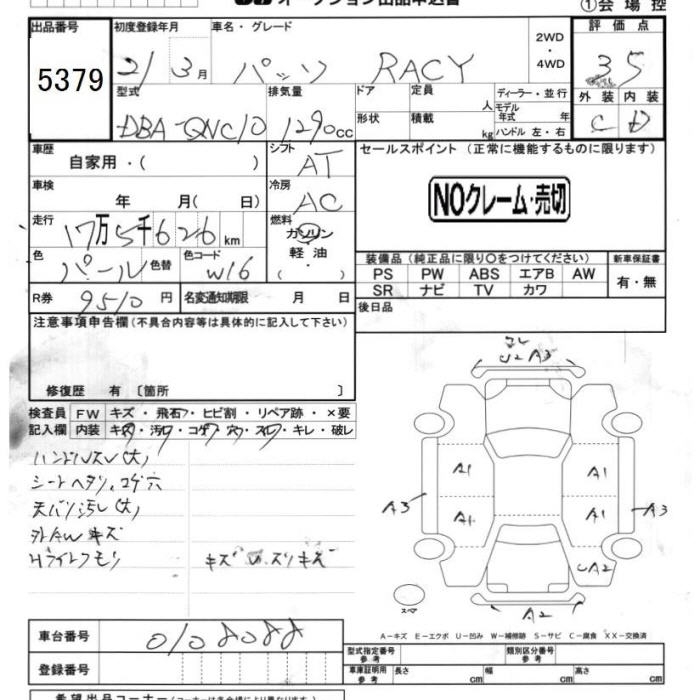 オークション出品申込書
①会場控
出品番号 初度登録年月 車名・グレード 2WD・4WD 評価点
5379 21/3月 パッソ RACY 3.5
型式 排気量 ドア 定員 人 ディーラー・並行 外装 内装
DBA-QNC10 1290cc 形状 積載 kg モデル年式 年 ハンドル 左・右 C D
車歴 自家用・( ) シフト AT セールスポイント (正常に機能するものに限ります)
車検 年 月( 日) 冷房 AC NOクレーム・売切
走行 17万5千626km 燃料 ガソリン 軽油 ( ・ )
色 パール 色替 色コード W16
装備品(純正品に限り○をつけてください) 新車保証書
PS PW ABS エアB AW 有・無
SR ナビ TV カワ
R券 9510円 名変通知期限 月 日 後日品
注意事項申告欄(不具合内容等は具体的に記入して下さい)
修復歴 有 〔箇所 〕
検査員記入欄 FW キズ・飛石・ヒビ割・リペア跡・×要
内装 キズ・汚レ・コゲ・穴・スレ・キレ・破レ
ハンドルスレ(大)
シートヘタリ、コゲ穴
天バリ汚レ(大)
外AWキズ
Hライトクモリ キズ U スリキズ
U2 A3
A1 A1
A3 A1 A1 A3
A2
A2
スペア
A-キズ E-エクボ U-凹み W-補修跡 S-サビ C-腐食 XX-交換済
車台番号 0108088
登録番号
型式指定番号 参考 類別区分番号 参考
車庫証明用 参考 長さ cm 幅 cm 高さ cm
希望出品コーナー